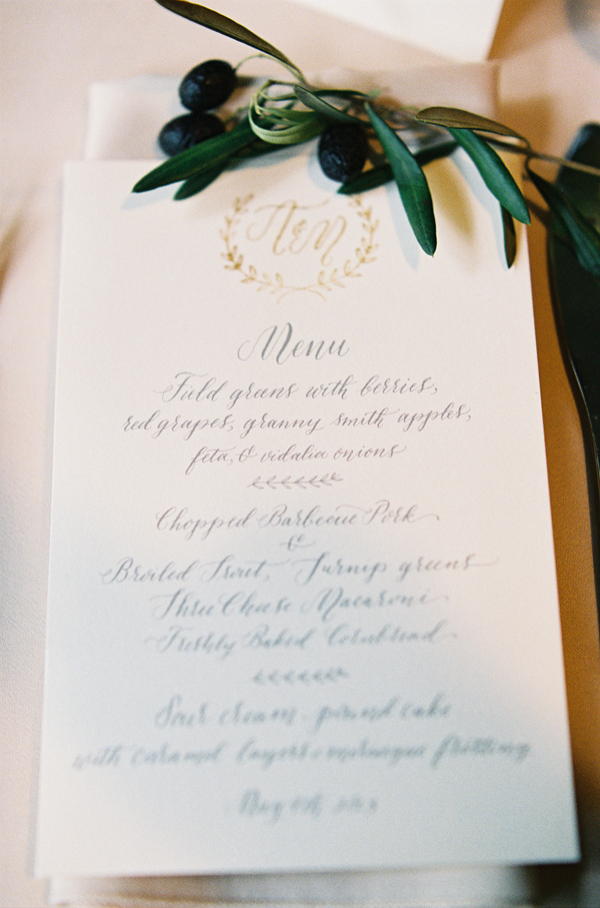 N&M
Menu
Field greens with berries,
red grapes, granny smith apples,
feta, & vidalia onions
Chopped Barbecue Pork
&
Broiled Trout, Turnip greens
Three Cheese Macaroni
Freshly Baked Cornbread
Sour cream pound cake
with caramel layers & meringue frosting
May